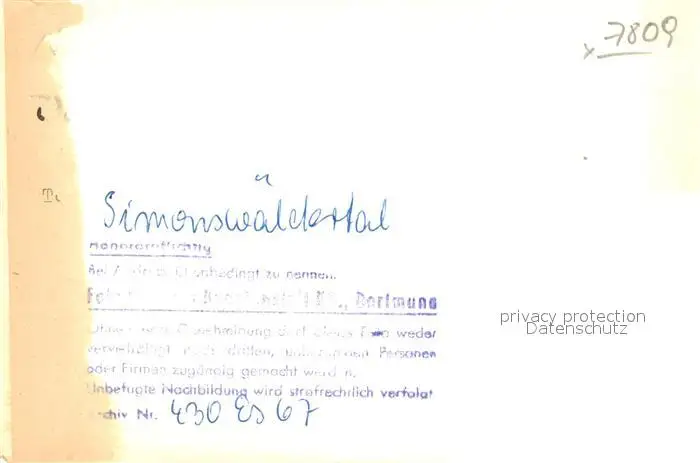 x 7809
T.
Simonswäldertal
Honorarpflichtig
Bei unbedingt zu nennen.
Dortmund
Ohne Genehmigung darf dieses Foto weder
vervielfältigt noch dritten, Personen
oder Firmen zugängig gemacht werden.
Unbefugte Nachbildung wird strafrechtlich verfolgt
Archiv Nr. 430 Es 67
privacy protection
Datenschutz